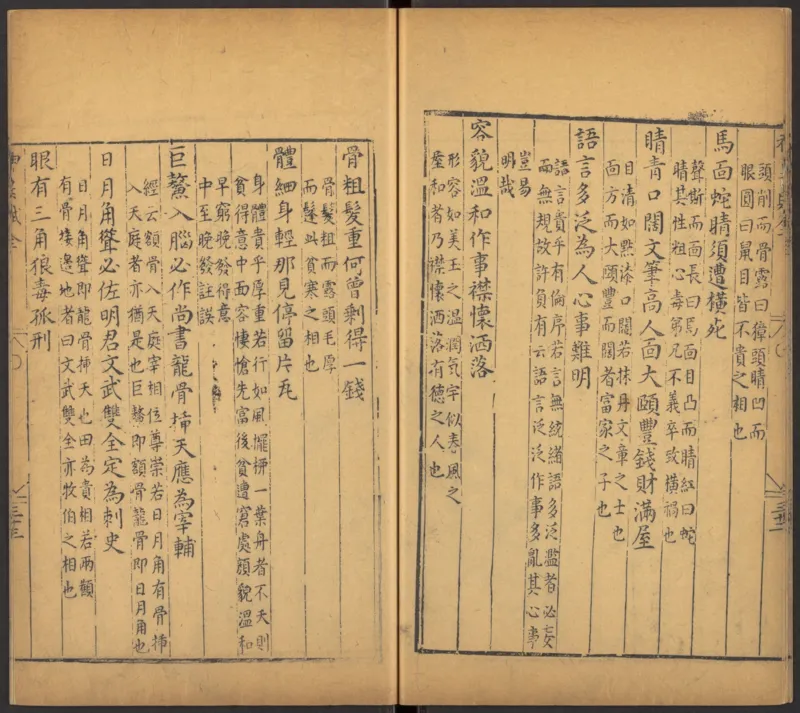 頭削而骨露曰獐頭睛凹而
眼圓曰鼠目皆不貴之相也
馬面蛇睛須遭橫死
聲嘶而面長曰馬面目凸而睛紅曰蛇
睛其性粗心毒弟兄不義卒致橫禍也
睛青口闊文筆高人面大頤豐錢財滿屋
目清如點漆口闊若抹丹文章之士也
面方而大頤豐而闊者富家之子也
語言多泛為人心事難明
語言貴乎有倫序若言無統緒語多泛濫者必妄
而無規故許負有云語言泛泛作事多亂其心事
豈易
明哉
容貌溫和作事襟懷洒落
形容如美玉之溫潤氣宇似春風之
墍和者乃襟懷洒落有德之人也
骨粗髮重何曾剩得一錢
骨髮粗而露頭毛厚
而髼此貧寒之相也
體細身輕那見停留片瓦
身體貴乎厚重若行如風擺拂一葉舟者不夭則
貧得意中面容悽愴先富後貧遭窘處顏貌溫和
早窮晚發得意
中至晚發註誤
巨鰲入腦必作尚書龍骨揷天應為宰輔
經云額骨入天庭宰相位尊崇若日月角有骨揷
入天庭者亦猶是也巨鰲即額骨龍骨即日月角也
日月角聳必佐明君文武雙全定為刺史
日月角聳即龍骨揷天也田為貴相若兩顴
有骨棲邊地者曰文武雙全亦牧伯之相也
眼有三角狼毒孤刑
三十三